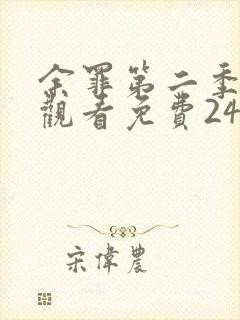 余罪第二季
觀看免費24
宋偉農